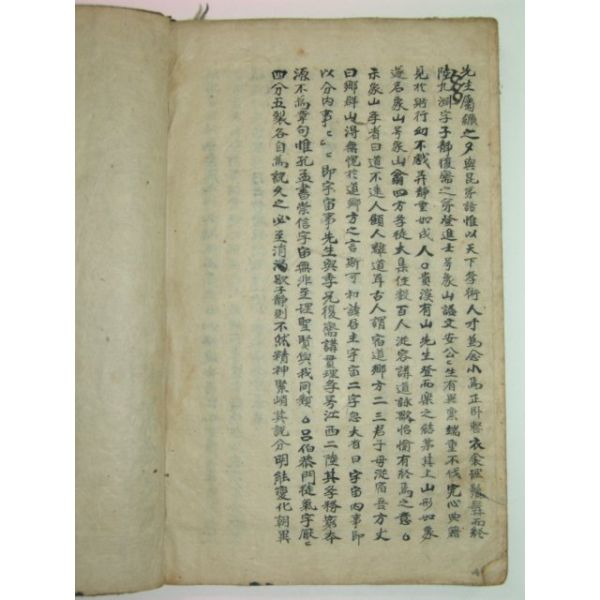 先生屬纊之夕與昆弟語惟以天下學術人才爲念小馬正卧整衣衾理鬚髯而終
陸九淵字子静復齋之弟登進士号象山諡文安公〻生有異稟端重不伐究心典籍
見於躬行幼不戱弄静重如成人○貴溪有山先生登而樂之結茅其上山形如象
遂名象山号象山翁四方學徒大集住數百人從容講道詠歌怡愉有終焉之意○
示象山學者曰道不遠人顧人離道耳古人謂宿道鄉方二三君子毋從宿吾方丈
曰鄉群山得無愧於道鄉方之言斯可初讀居士宇宙二字忽大省曰宇宙内事即
以分内事〻〻即宇宙事先生與季兄復齋講貫理學号江西二陸其學務窮本
源不爲章句惟孔孟書崇信宇宙無非至理聖賢與我同類○呂伯恭門徒氣字厭〻
四分五裂各自爲說久之必至消渴歇子静則不然精神緊峭其說分明能變化朝異